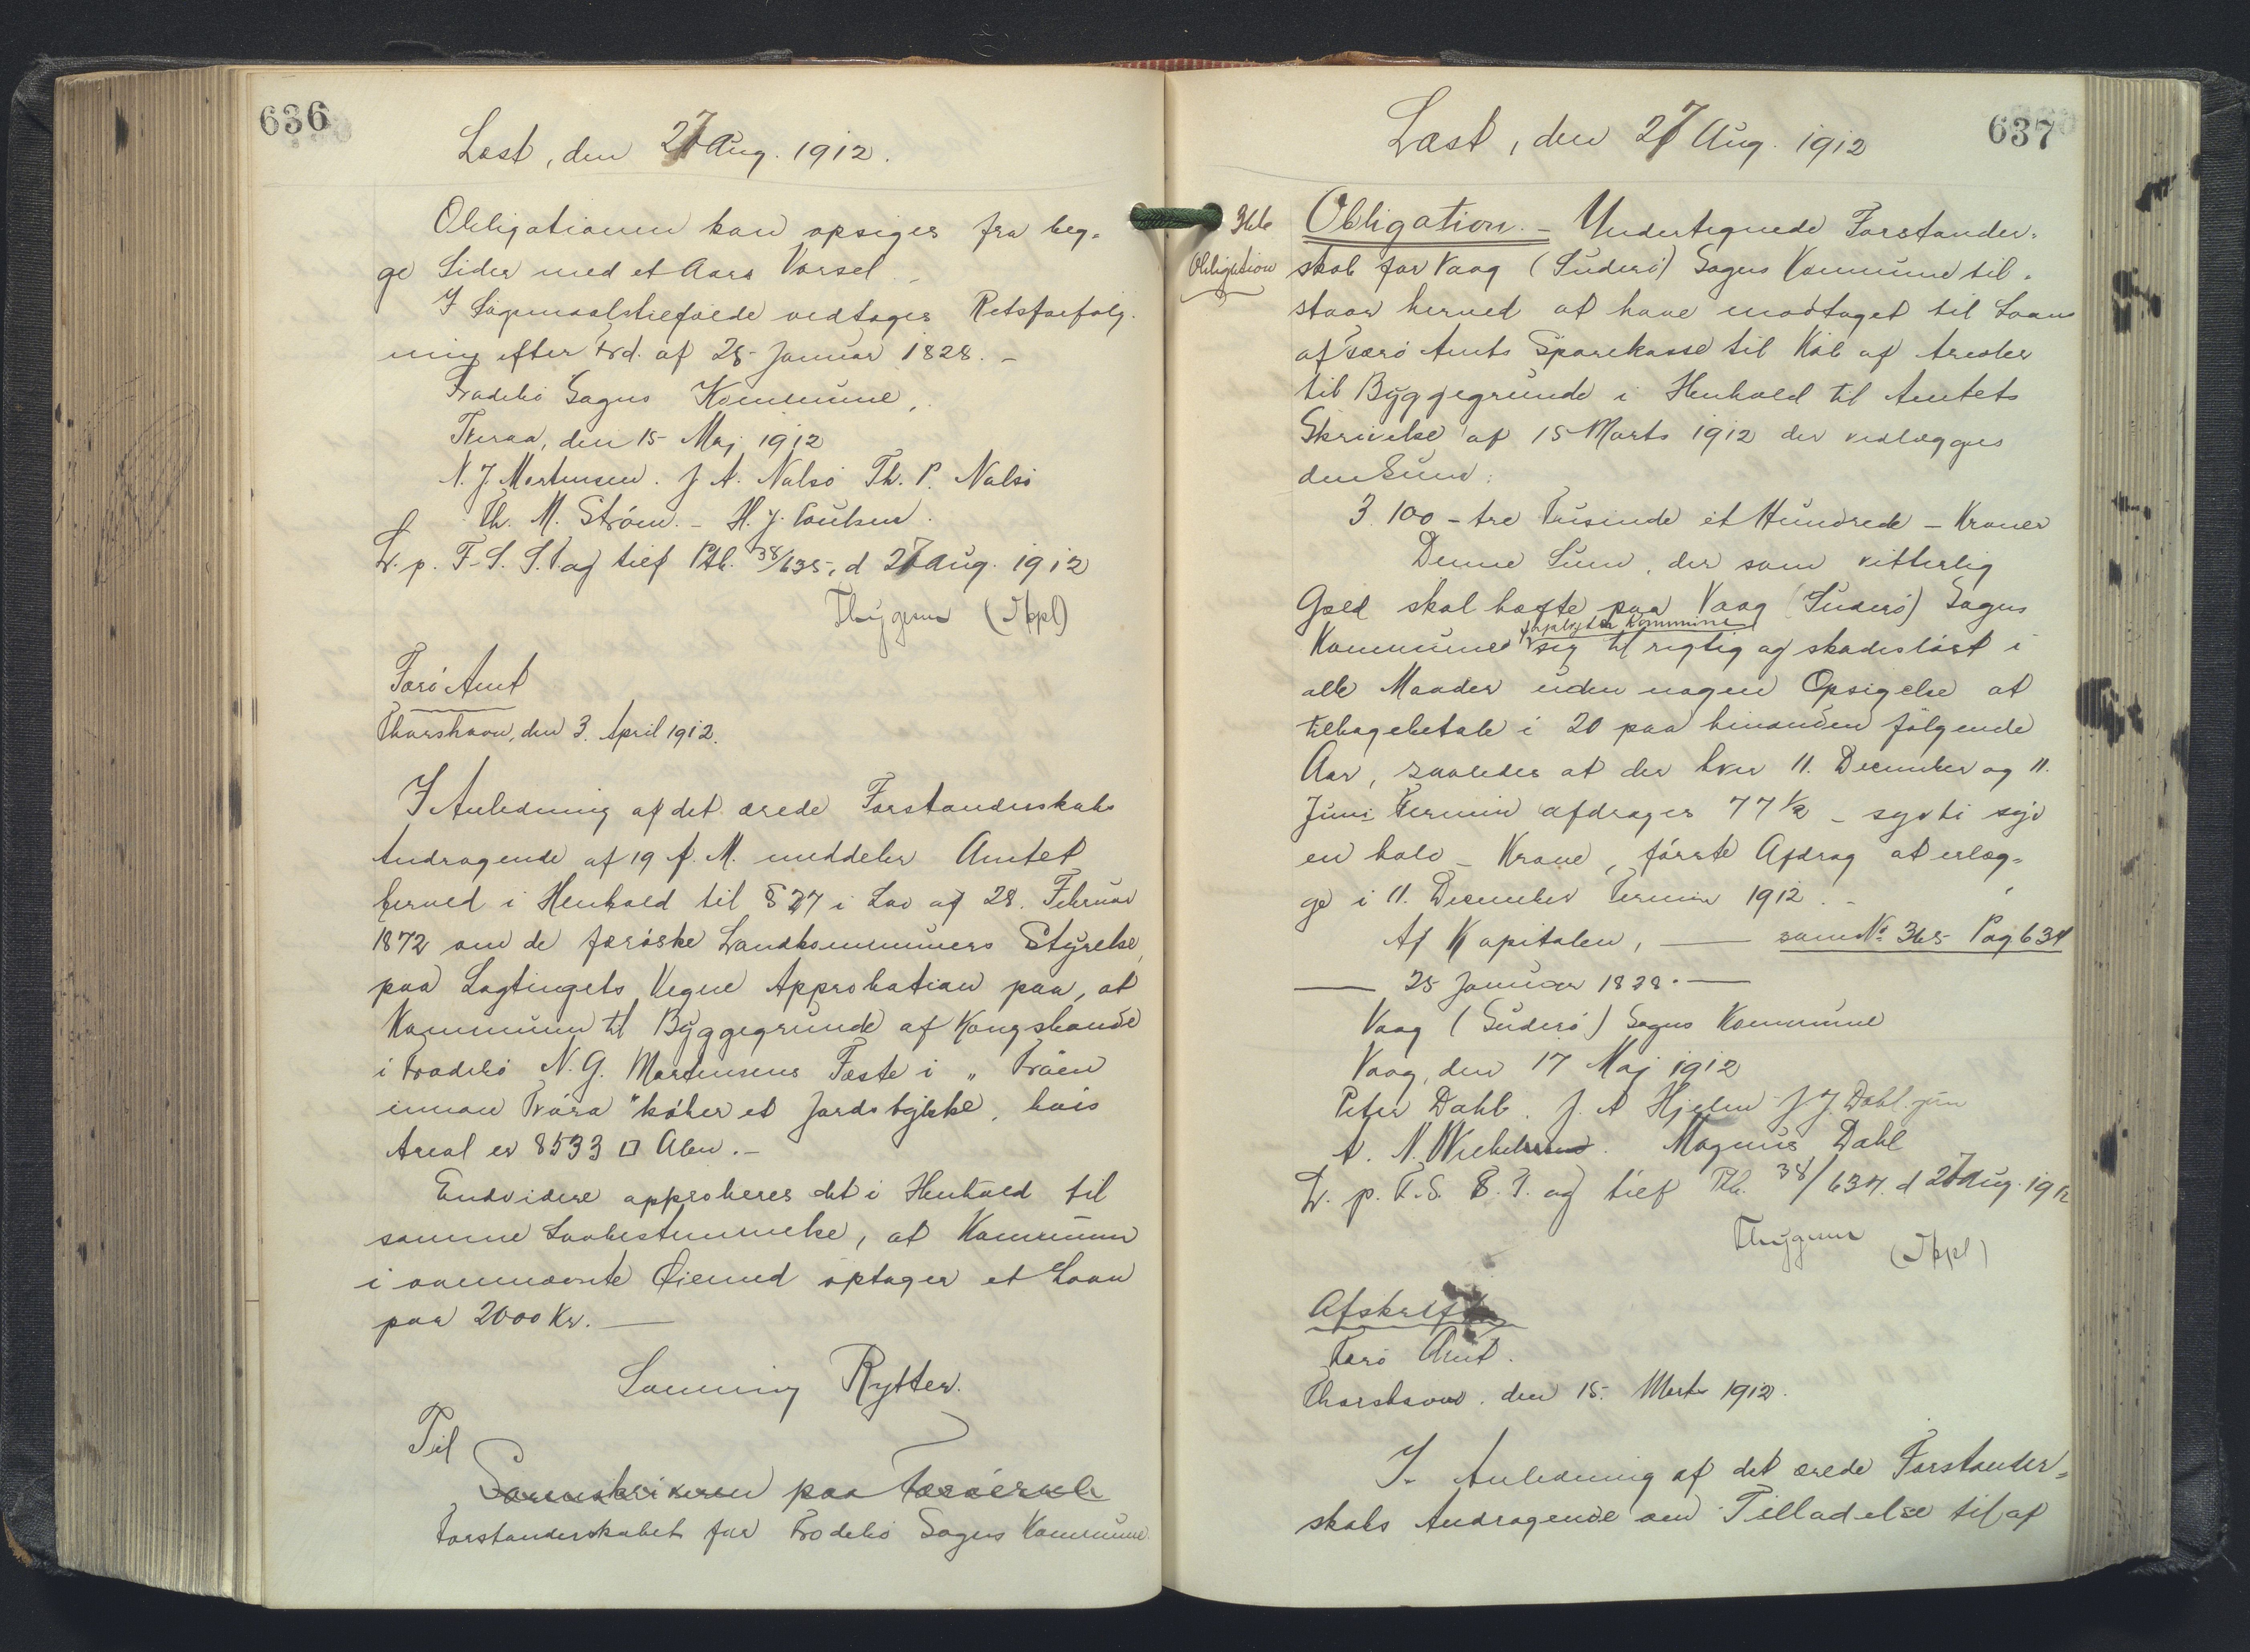 636
Læst, den 27 Aug. 1912.
Obligationen kan opsiges fra beg-
ge Sider med et Aars Varsel.
I Søgsmaalstilfælde vedtages Retsforfølg-
ning efter Frd. af 25 Januar 1828. –
Frodebø Sogns Kommune,
Tveraa, den 15 Maj 1912
N. J. Mortensen. J A. Nalsø Th. P. Nalsø
Th. M. Strøm. – H. J. Poulsen.
L. p. F. S. S. P. og tilf Ptb. 38/635, d 27 Aug. 1912
Thygesen (Kpl)
Færø Amt
Thorshavn, den 3. April 1912.
I Anledning af det ærede Forstanderskabs
Andragende af 19 f. M. meddeler Amtet
herved i Henhold til § 27 i Lov af 28. Februar
1872 om de færøske Landkommuners Styrelse,
paa Lagtingets Vegne Approbation paa, at
Kommunen til Byggegrunde af Kongslande
i Frodebø N. G. Mortensens Fæste i „ Trøen
innan Tvøra " køber et Jordstykke, hvis
Areal er 8533 □ Alen. –
Endvidere approberes det i Henhold til
samme Lovbestemmelse, at Kommunen
i ovennævnte Øiemed optager et Laan
paa 2000 Kr. —
Rytter.
Til
Sorenskriveren paa Færøerne
Forstanderskabet for Frodebø Sogns Kommune.
637
Læst, den 27 Aug. 1912
366 Obligation. – Undertegnede Forstander-
Obligation skab for Vaag (Suderø) Sogns Kommune til-
staar herved at have modtaget til Laans
af Færø Amts Sparekasse til Køb af Arealer
til Byggegrunde i Henhold til Amtets
Skrivelse af 15 Marts 1912 der vedlægges
den Sum:
3 100 – tre Tusinde et Hundrede – Kroner
Denne Sum, der som vitterlig
Gæld skal hæfte paa Vaag (Suderø) Sogns
forpligter Kommune
Kommune sig til rigtig og skadesløst i
alle Maader uden nogen Opsigelse at
tilbagebetale i 20 paa hinanden følgende
Aar, saaledes at der hver 11. December og 11.
Juni Termin afdrages 77 ½ – syvti syv
en halv – Krone, første Afdrag at erlæg-
ge i 11. December Termin 1912. –
Af Kapitalen, — som No 365 Pag 634
— 25 Januar 1828. —
Vaag (Suderø) Sogns Kommune
Vaag, den 17 Maj 1912
Peter Dahl. J. A Hjelm J J. Dahl jun
A. N. Vilhelmsen. Magnus Dahl
L. p. F. S. S. P. og tilf Ptb. 38/634. d 27 Aug. 1912
Thygesen (Kpl)
Afskrift
Færø Amt.
Thorshavn, den 15. Marts 1912.
I Anledning af det ærede Forstander-
skabs Andragende om Tilladelse til af